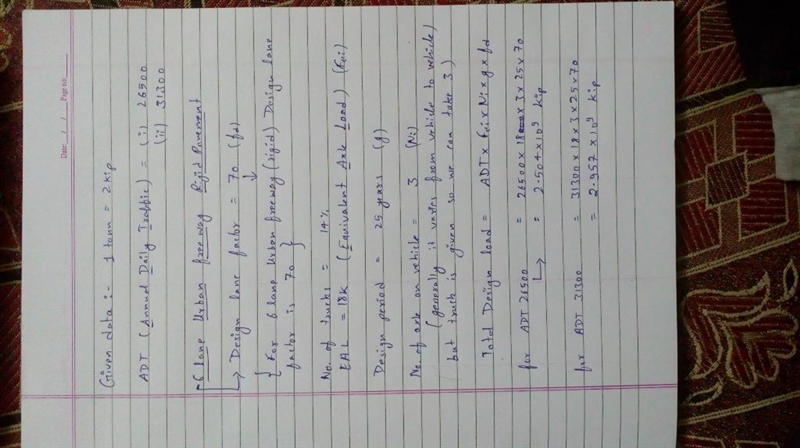 Date: / / Page no:
Given data :- 1 tonn = 2 kip
ADT (Annual Daily Traffic) = (i) 26500
(ii) 31300
-6 lane Urban freeway Rigid Pavement
→ Design lane factor = 70 (fd)
{ For 6 lane Urban freeway (rigid) Design lane
factor is 70 }
No. of trucks = 14%
EAL = 18K (Equivalent Axle Load) (Fei)
Design period = 25 years (g)
No. of axle on vehicle = 3 (Ni)
(generally it varies from vehicle to vehicle)
but truck is given so we can take 3)
Total Design load = ADT x Fei x Ni x g x fd
for ADT 26500 = 26500 x 18 x 3 x 25 x 70
↳ = 2.504 x 10⁹ kip
for ADT 31300 = 31300 x 18 x 3 x 25 x 70
= 2.957 x 10⁹ kip